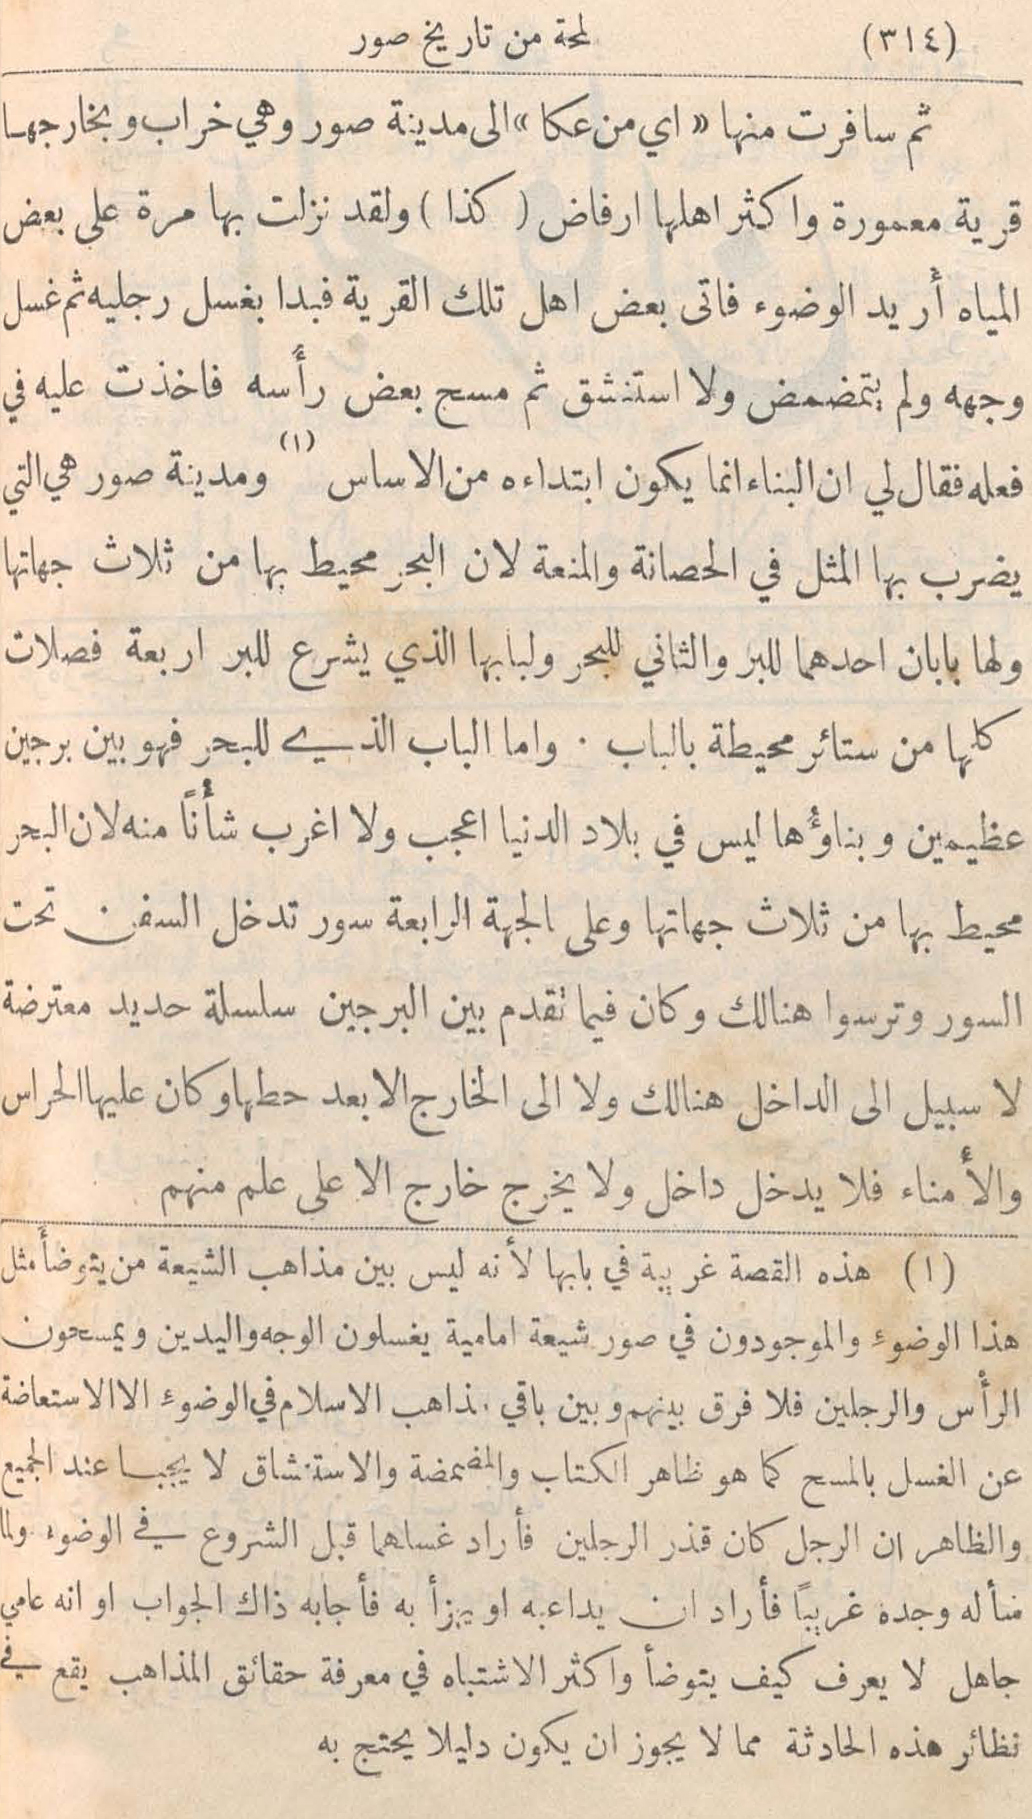 (٣١٤) لمحة من تاريخ صور
ثم سافرت منها «اي من عكا» الى مدينة صور وهي خراب وبخارجها
قرية معمورة واكثر اهلها ارفاض (كذا) ولقد نزلت بها مرة على بعض
المياه أريد الوضوء فاتى بعض اهل تلك القرية فبدا بغسل رجليه ثم غسل
وجهه ولم يتمضمض ولا استنشق ثم مسح بعض رأسه فاخذت عليه في
فعله فقال لي ان البناء انما يكون ابتداءه من الاساس (١) ومدينة صور هي التي
يضرب بها المثل في الحصانة والمنعة لان البحر محيط بها من ثلاث جهاتها
ولها بابان احدهما للبر والثاني للبحر ولبابها الذي يشرع للبر اربعة فصلات
كلها من ستائر محيطة بالباب . واما الباب الذي للبحر فهو بين برجين
عظيمين وبناؤها ليس في بلاد الدنيا اعجب ولا اغرب شأنًا منه لان البحر
محيط بها من ثلاث جهاتها وعلى الجهة الرابعة سور تدخل السفن تحت
السور وترسوا هنالك وكان فيما تقدم بين البرجين سلسلة حديد معترضة
لا سبيل الى الداخل هنالك ولا الى الخارج الا بعد حطها وكان عليها الحراس
والأمناء فلا يدخل داخل ولا يخرج خارج الا على علم منهم
(١) هذه القصة غريبة في بابها لأنه ليس بين مذاهب الشيعة من يتوضأ مثل
هذا الوضوء والموجودون في صور شيعة امامية يغسلون الوجه واليدين ويمسحون
الرأس والرجلين فلا فرق بينهم وبين باقي مذاهب الاسلام في الوضوء الا الاستعاضة
عن الغسل بالمسح كما هو ظاهر الكتاب والمضمضة والاستنشاق لا يجبا عند الجميع
والظاهر ان الرجل كان قذر الرجلين فأراد غسلهما قبل الشروع في الوضوء ولما
سأله وجده غريبًا فأراد ان يداعبه او يهزأ به فأجابه ذاك الجواب او انه عامي
جاهل لا يعرف كيف يتوضأ واكثر الاشتباه في معرفة حقائق المذاهب يقع في
نظائر هذه الحادثة مما لا يجوز ان يكون دليلا يحتج به